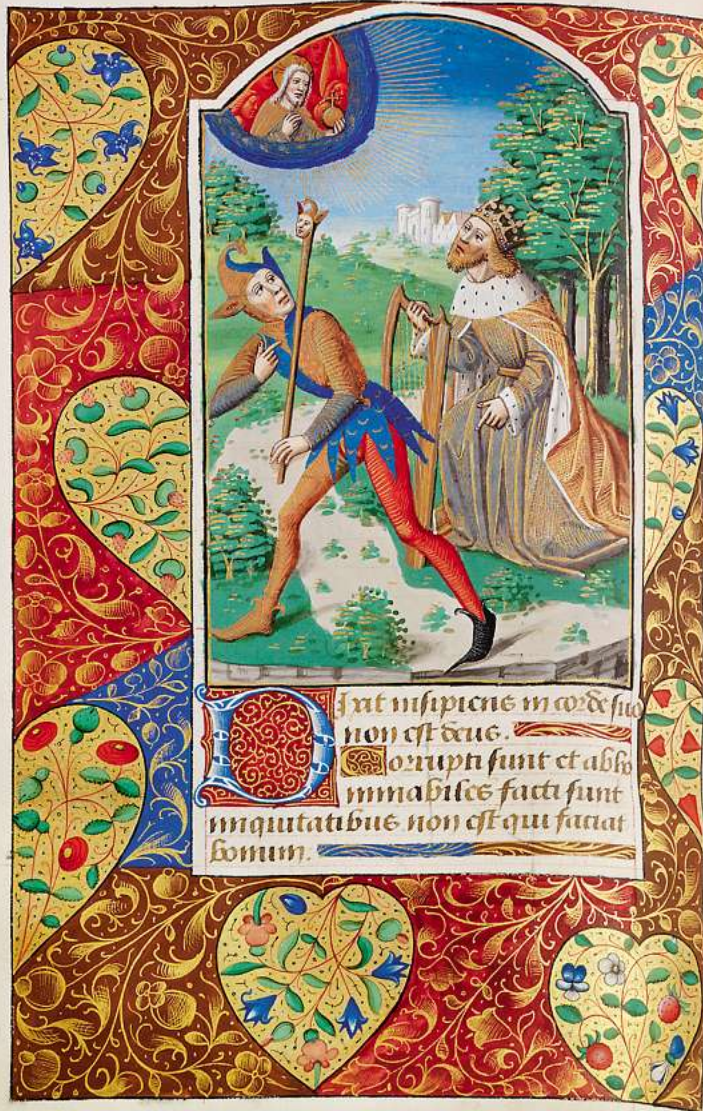 Dixit insipiens in corde suo
non est deus.
Corrupti sunt et abho
minabiles facti sunt
iniquitatibus non est qui faciat
bonum.